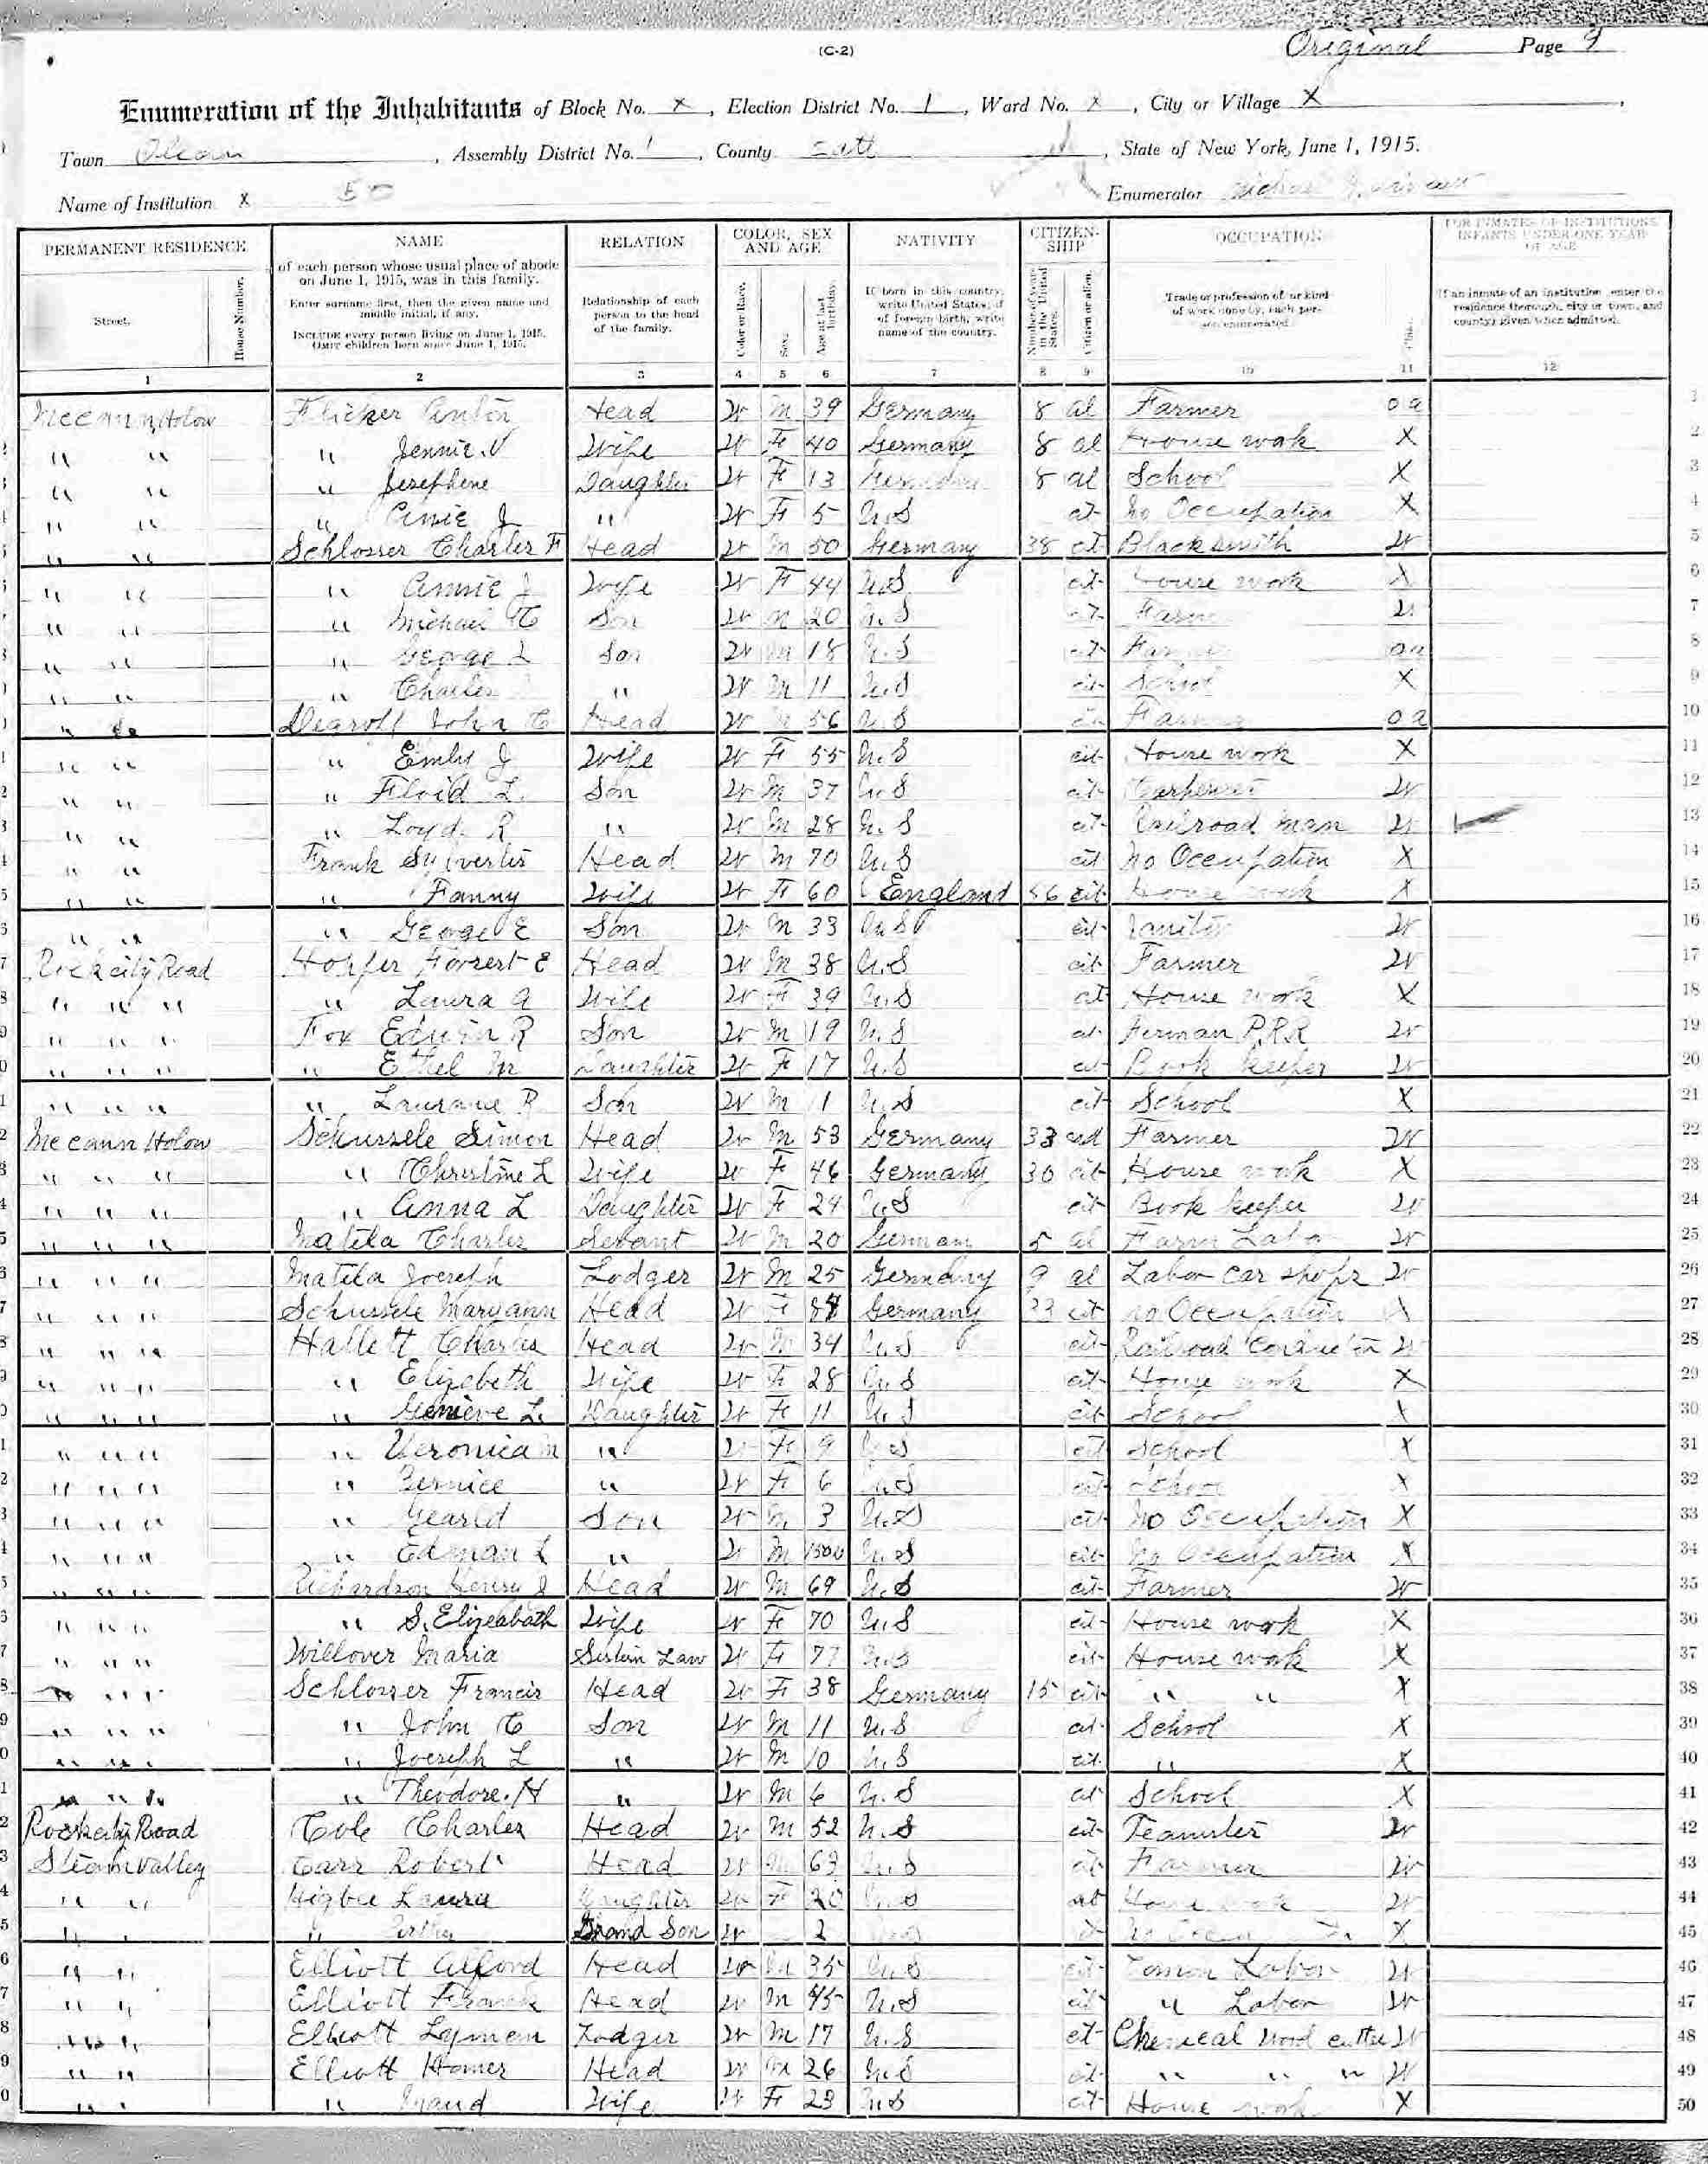 (C-2)
Original Page 9
Enumeration of the Inhabitants of Block No. x, Election District No. 1, Ward No. x, City or Village X,
Town Olean, Assembly District No. 1, County Catt, State of New York, June 1, 1915.
Name of Institution x 50 Enumerator
PERMANENT RESIDENCE NAME RELATION COLOR, SEX AND AGE NATIVITY CITIZENSHIP OCCUPATION FOR INMATES OF INSTITUTIONS INFANTS UNDER ONE YEAR OF AGE
Street. House Number. of each person whose usual place of abode on June 1, 1915, was in this family. Enter surname first, then the given name and middle initial, if any. INCLUDE every person living on June 1, 1915. OMIT children born since June 1, 1915. Relationship of each person to the head of the family. Color or Race. Sex. Age at last birthday. If born in this country, write United States; if of foreign birth, write name of the country. Number of years in the United States. Citizen or alien. Trade or profession of, or kind of work done by, each person enumerated. Class. If an inmate of an institution, enter the residence therefrom, city or town, and county given when admitted.
1 2 3 4 5 6 7 8 9 10 11 12
Mccann Holow Flicker Anton Head W M 39 Germany 8 al Farmer oa 1
" " " Jennie V Wife W F 40 Germany 8 al House work X 2
" " " Josephene Daughter W F 13 Germany 8 al School X 3
" " " Anie J " W F 5 U.S cit no Occupation X 4
" " Schlosser Charles F Head W M 50 Germany 38 cit Blacksmith W 5
" " " Annie J Wife W F 44 U.S cit House work X 6
" " " Michael C Son W M 20 U.S cit Farm W 7
" " " George L Son W M 18 U.S cit oa 8
" " " Charles " W M 11 U.S cit School X 9
" " Degroff John C Head W M 56 U.S cit Farmer oa 10
" " " Emly J Wife W F 55 U.S cit House work X 11
" " " Floid L. Son W M 37 U.S cit Carpenter W 12
" " " Loyd R " W M 28 U.S cit Railroad man W 13
" " Frank Sylvester Head W M 70 U.S cit no Occupation X 14
" " " Fanny Wife W F 60 England 56 cit House work X 15
" " " George E Son W M 33 U.S cit Janitor W 16
Rock city Road Hopfer Forrest E Head W M 38 U.S cit Farmer W 17
" " " " Laura A Wife W F 39 U.S cit House work X 18
" " " Fox Edwin R Son W M 19 U.S cit Ferman P.R.R W 19
" " " " Ethel M Daughter W F 17 U.S cit Book keeper W 20
" " " " Laurance R Son W M 1 U.S cit School X 21
Mccann Holow Schussele Simon Head W M 53 Germany 33 cit Farmer W 22
" " " " Christine L Wife W F 46 Germany 30 cit House work X 23
" " " " Anna L Daughter W F 24 U.S cit Book keeper W 24
" " " Matela Charles Servant W M 20 German 5 al Farm Labor W 25
" " " Matela Joeseph Lodger W M 25 Germany 9 al Labor car shops W 26
" " " Schussele Maryann Head W F Germany 33 cit no Occupation X 27
" " " Hallett Charles Head W M 34 U.S cit Railroad Conductor W 28
" " " " Elizebeth Wife W F 28 U.S cit House work X 29
" " " " Genieve L. Daughter W F 11 U.S cit School X 30
" " " " Veronica M " W F 9 U.S cit School X 31
" " " " Bernice " W F 6 U.S cit School X 32
" " " " Gearld Son W M 3 U.S cit no Occupation X 33
" " " " Edman L " W M U.S cit no Occupation X 34
" " " Richardson Henry J Head W M 69 U.S cit Farmer W 35
" " " " S. Elizeabath Wife W F 70 U.S cit House work X 36
" " " Willover Maria Sisterin Law W F 77 U.S cit House work X 37
" " " Schlosser Francis Head W F 38 Germany 15 cit " " X 38
" " " " John C Son W M 11 U.S cit School X 39
" " " " Joeseph L " W M 10 U.S cit " X 40
" " " " Theodore. H " W M 6 U.S cit School X 41
Rockcity Road Cole Charles Head W M 52 U.S cit Teamster W 42
Steam Valley Carr Robert Head W M 63 U.S cit Farmer W 43
" " Higbee Laura Daughter W F 20 U.S cit House work W 44
" " " Grand Son W 2 X 45
" " Elliott Alford Head W M 35 U.S cit Comon Labor W 46
" " Elliott Frank Head W M 45 U.S cit " Labor W 47
" " Elliott Lyman Lodger W M 17 U.S cit Chemical wood cutter W 48
" " Elliott Homer Head W M 26 U.S cit " " " W 49
" " " Maud Wife W F 23 U.S cit House work X 50